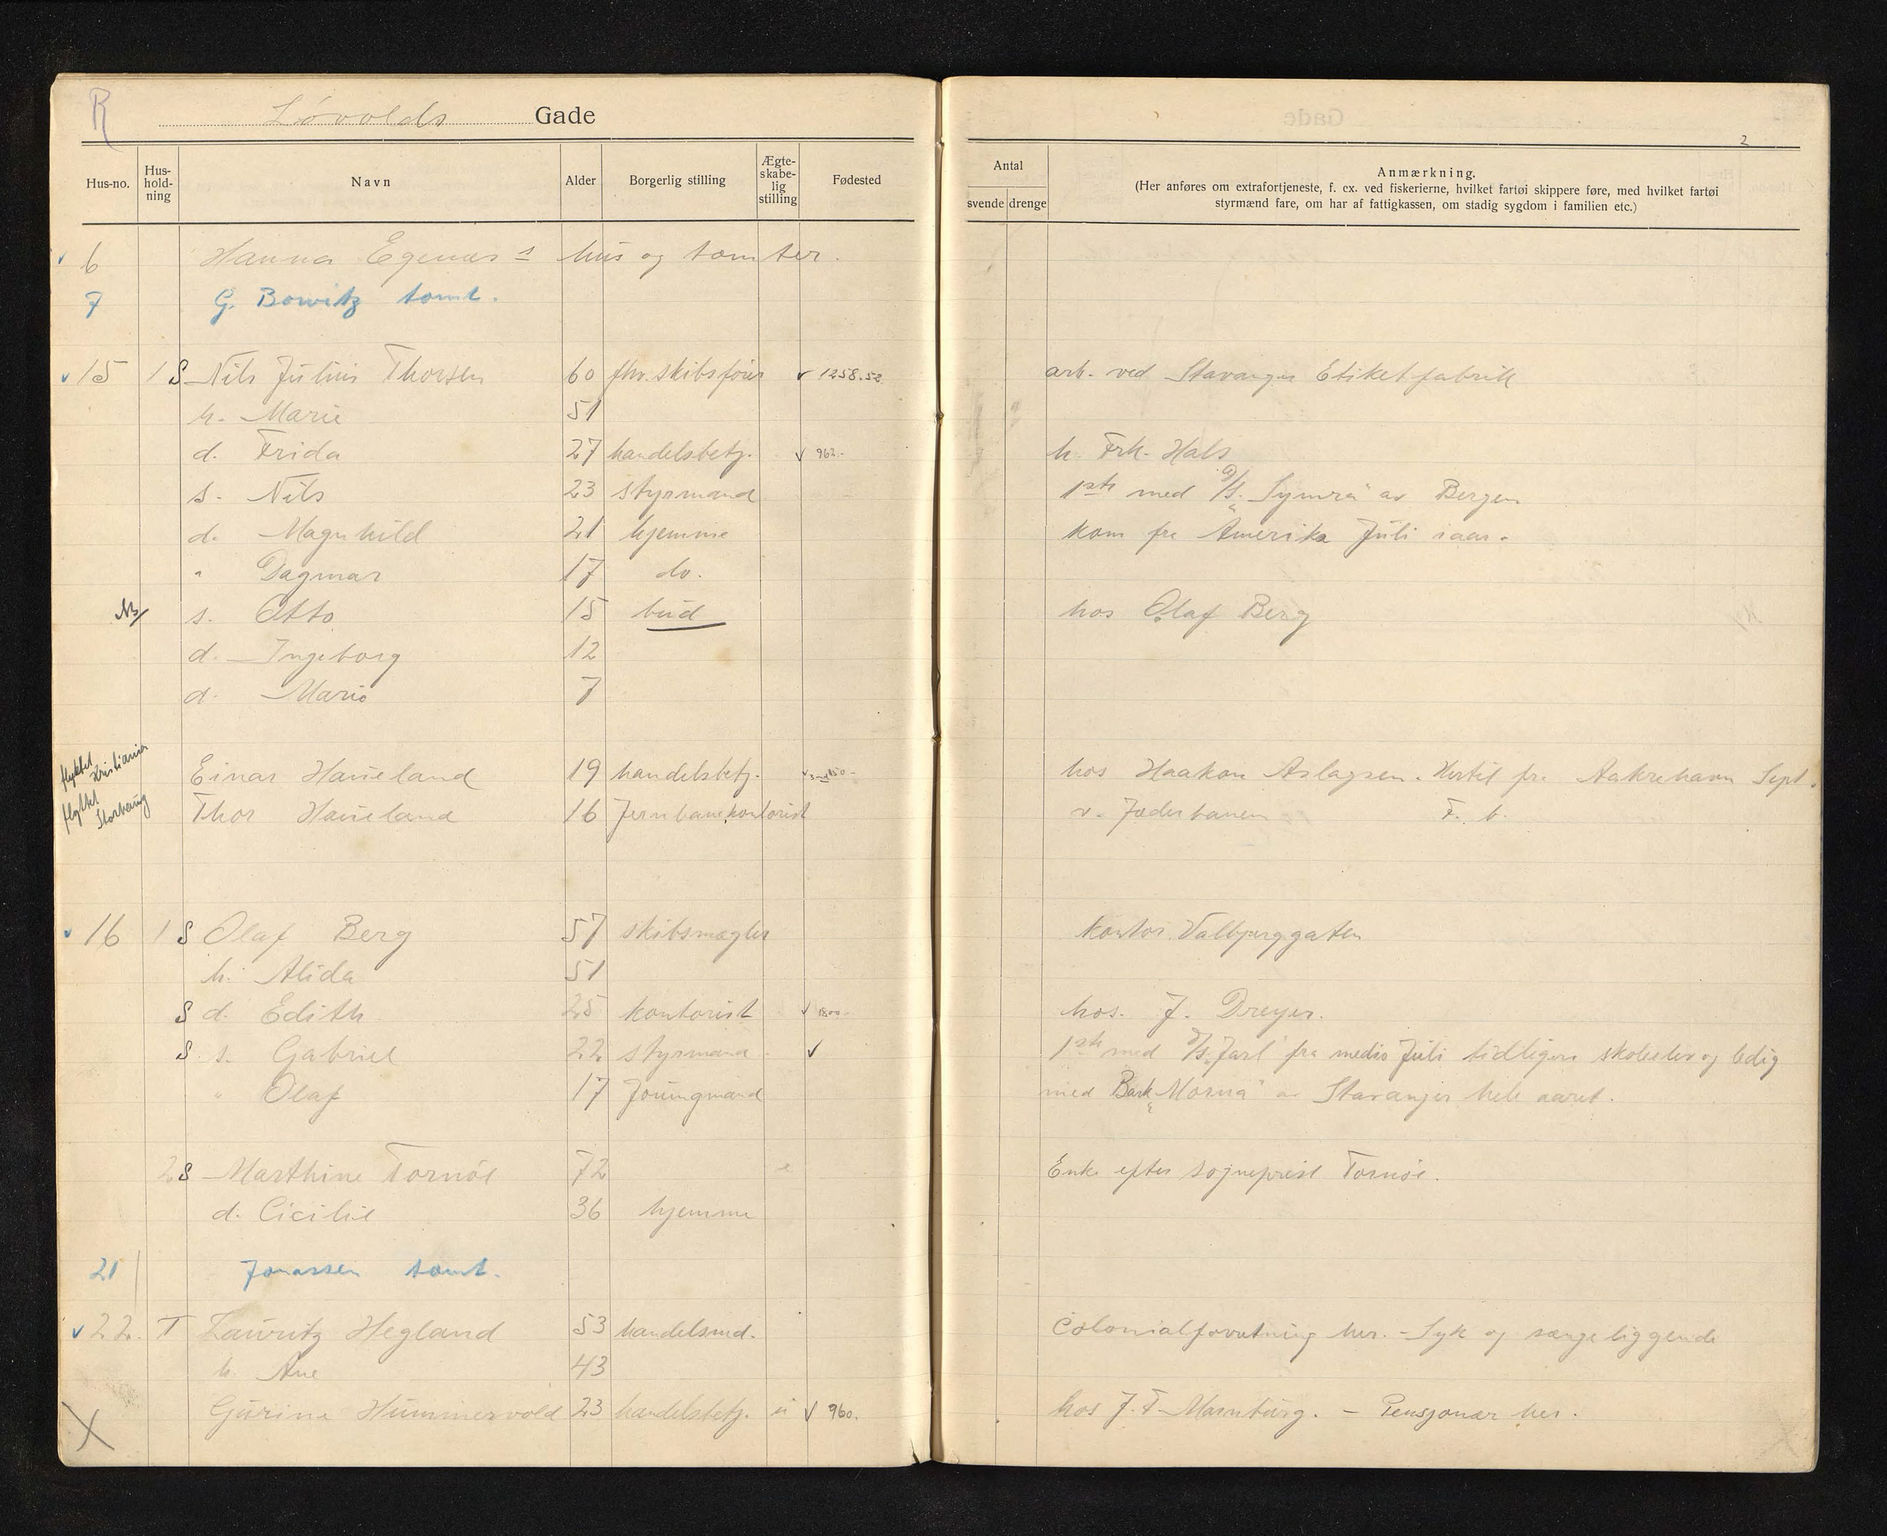 R
Løvolds Gade
2
Hus-no. Hus-hold-ning Navn Alder Borgerlig stilling Ægte-skabe-lig stilling Fødested
Antal svende drenge
Anmærkning.
(Her anføres om extrafortjeneste, f. ex. ved fiskerierne, hvilket fartøi skippere føre, med hvilket fartøi
styrmænd fare, om har af fattigkassen, om stadig sygdom i familien etc.)
✓ 6 Hanna Egenæs's hus og tomter.
7 G. Bowitz tomt.
✓ 15 1 S Nils Julius Thorsen 60 fhv. skibsfører ✓ 1258.52 arb. ved Stavanger Etiketfabrik
h. Marie 51
d. Frida 27 handelsbetj. ✓ 962.- h. Frk. Hals
s. Nils 23 styrmand 1ste med D/S. "Symra" av Bergen
d. Magnhild 21 hjemme kom fra Amerika Juli iaar.
" Dagmar 17 do.
NB/ s. Otto 15 bud hos Olaf Berg
d. Ingeborg 12
d. Marie 7
flyttet Kristiania Einar Haueland 19 handelsbetj. hos Haakon Aslagsen. Hertil fra Aakrehavn Sept.
flyttet Storhaug Thor Haueland 16 Jernbanekontorist v. Jæderbanen F. b.
✓ 16 1 S Olaf Berg 57 skibsmægler kontor Valbjerggaten
h. Alida 51
S d. Edith 25 kontorist ✓ 1800.- hos. J. Dreyer.
S s. Gabriel 22 styrmand ✓ 1ste med D/S. "Jarl" fra medio Juli tidligere skoleelev og ledig
" Olaf 17 Joungmand med Bark "Morna" av Stavanger hele aaret.
2 S Marthine Tornøe 72 e Enke efter sogneprest Tornøe.
d. Cicilie 36 hjemme
21 Jonassen tomt.
✓ 22. T Lauritz Hegland 53 handelsmd. Colonialforretning her. - Syk og sængeliggende
h. Ane 43
X Gurine Hummervold 23 handelsbetj. ei ✓ 960. hos J. F. Marnburg. - Pensjonær her.